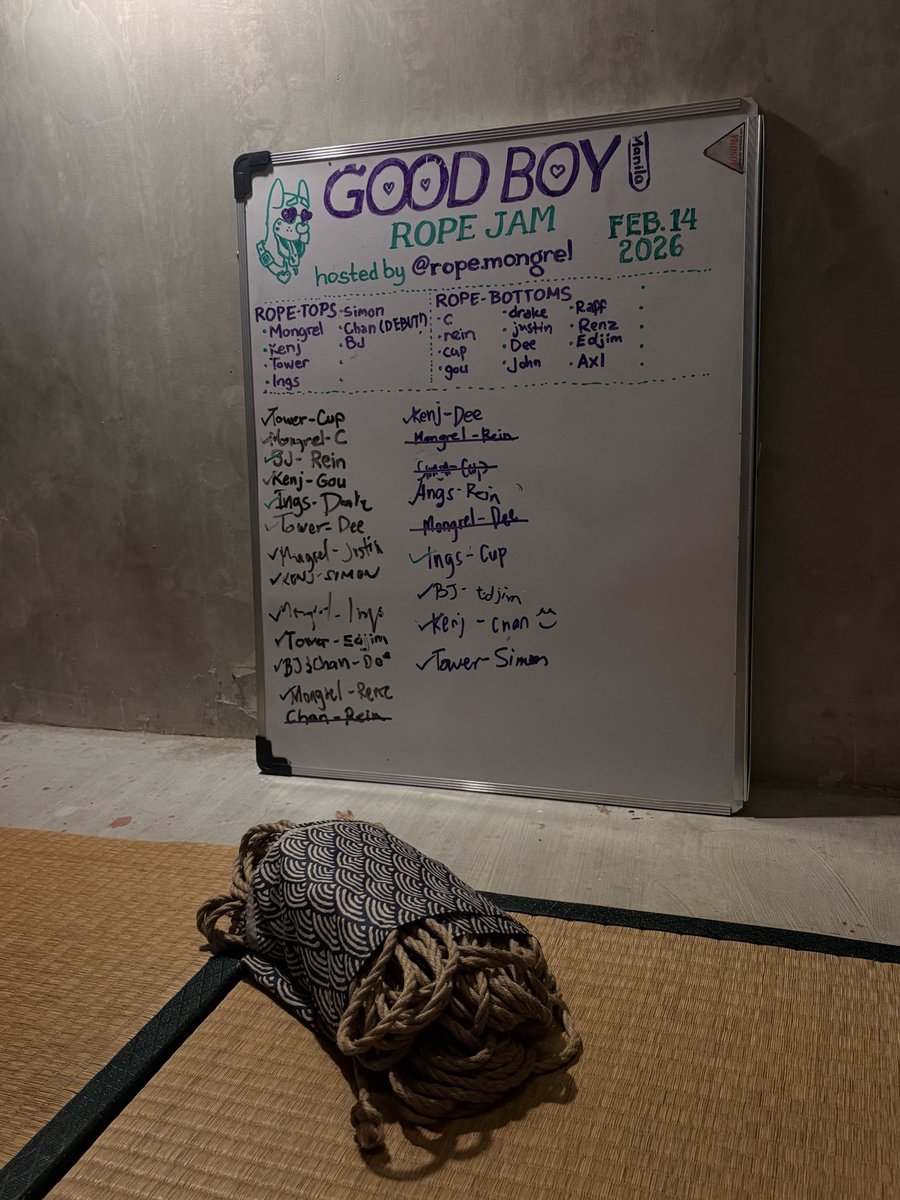 GOOD BOY
Manila
ROPE JAM
FEB. 14
2026
hosted by @rope.mongrel
ROPE-TOPS
• Mongrel
• Kenj
• Tower
• Ings
• Simon
• Chan (DEBUT!)
• BJ
ROPE-BOTTOMS
• C
• rein
• cup
• gou
• drake
• justin
• Dee
• John
• Raff
• Renz
• Edjim
• Axl
✓Tower-Cup
✓Mongrel-C
✓BJ-Rein
✓Kenj-Gou
✓Ings-
✓Tower-Dee
✓Mongrel-Justin
✓KENJ-SIMON
✓Mongrel-Ings
✓Tower-Edjim
✓BJ & Chan-
✓Mongrel-Renz
Chan-Rein
✓Kenj-Dee
Mongrel-Rein
Angs-Rein
Mongrel-Dee
✓Ings-Cup
✓BJ-Edjim
✓Kenj-Chan
✓Tower-Simon